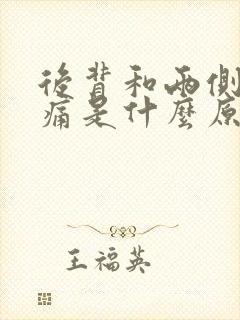 後背和兩側
痛是什麼原
王福英